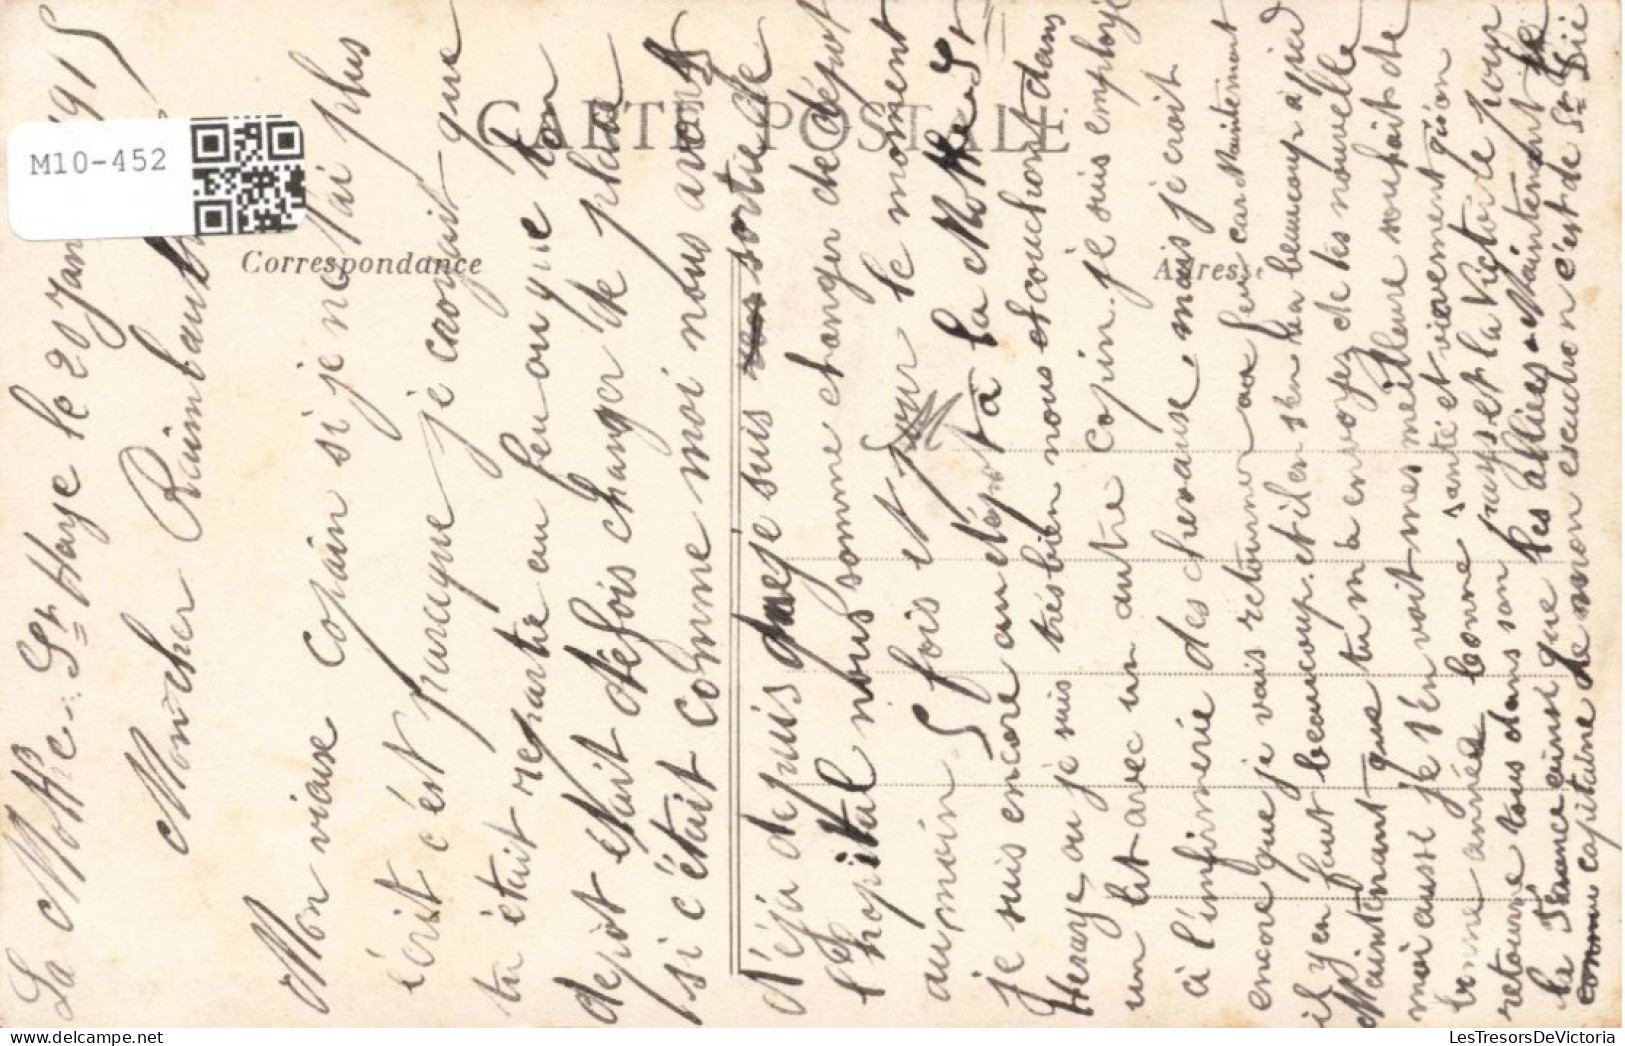 M10-452
CARTE POSTALE
Correspondance
Adresse
La Mothe St Haye le 20 Jan 1915
Moncher Raimbault
Mon viause copain si je ne t'ai plus
écrit c'ést parceque je croyait que
tu était repartie au feu ou que ton
depot était défois changer de place
si c'était comme moi nous avons
d'éja depuis que je suis sortie de
l'hopital nous somme changer de dépot
aumoin 5 fois et pour le moment
je suis encore au dépot à la Mothe St
Heraye ou je suis trés bien nous et couchont dans
un lit avec un autre copin. je suis employé
à l'infirmerie des chevause, mais je croit
encore que je vais retourner au feu car Maintemant
il y en faut beaucoup. et il en s'en va beaucoup ajier
Maintenant que tu m'a envoyez de tés nouvelle
moi ausse je s'en voit mes meilleure souhait de
bonne année bonne santé et vivement qu'on
retourne tous dans son pays et la Victoire pour
la France einsé que les alliés. Maintenant le
capitaine de mon escadron c'est de St Dié
LesTresorsDeVictoria